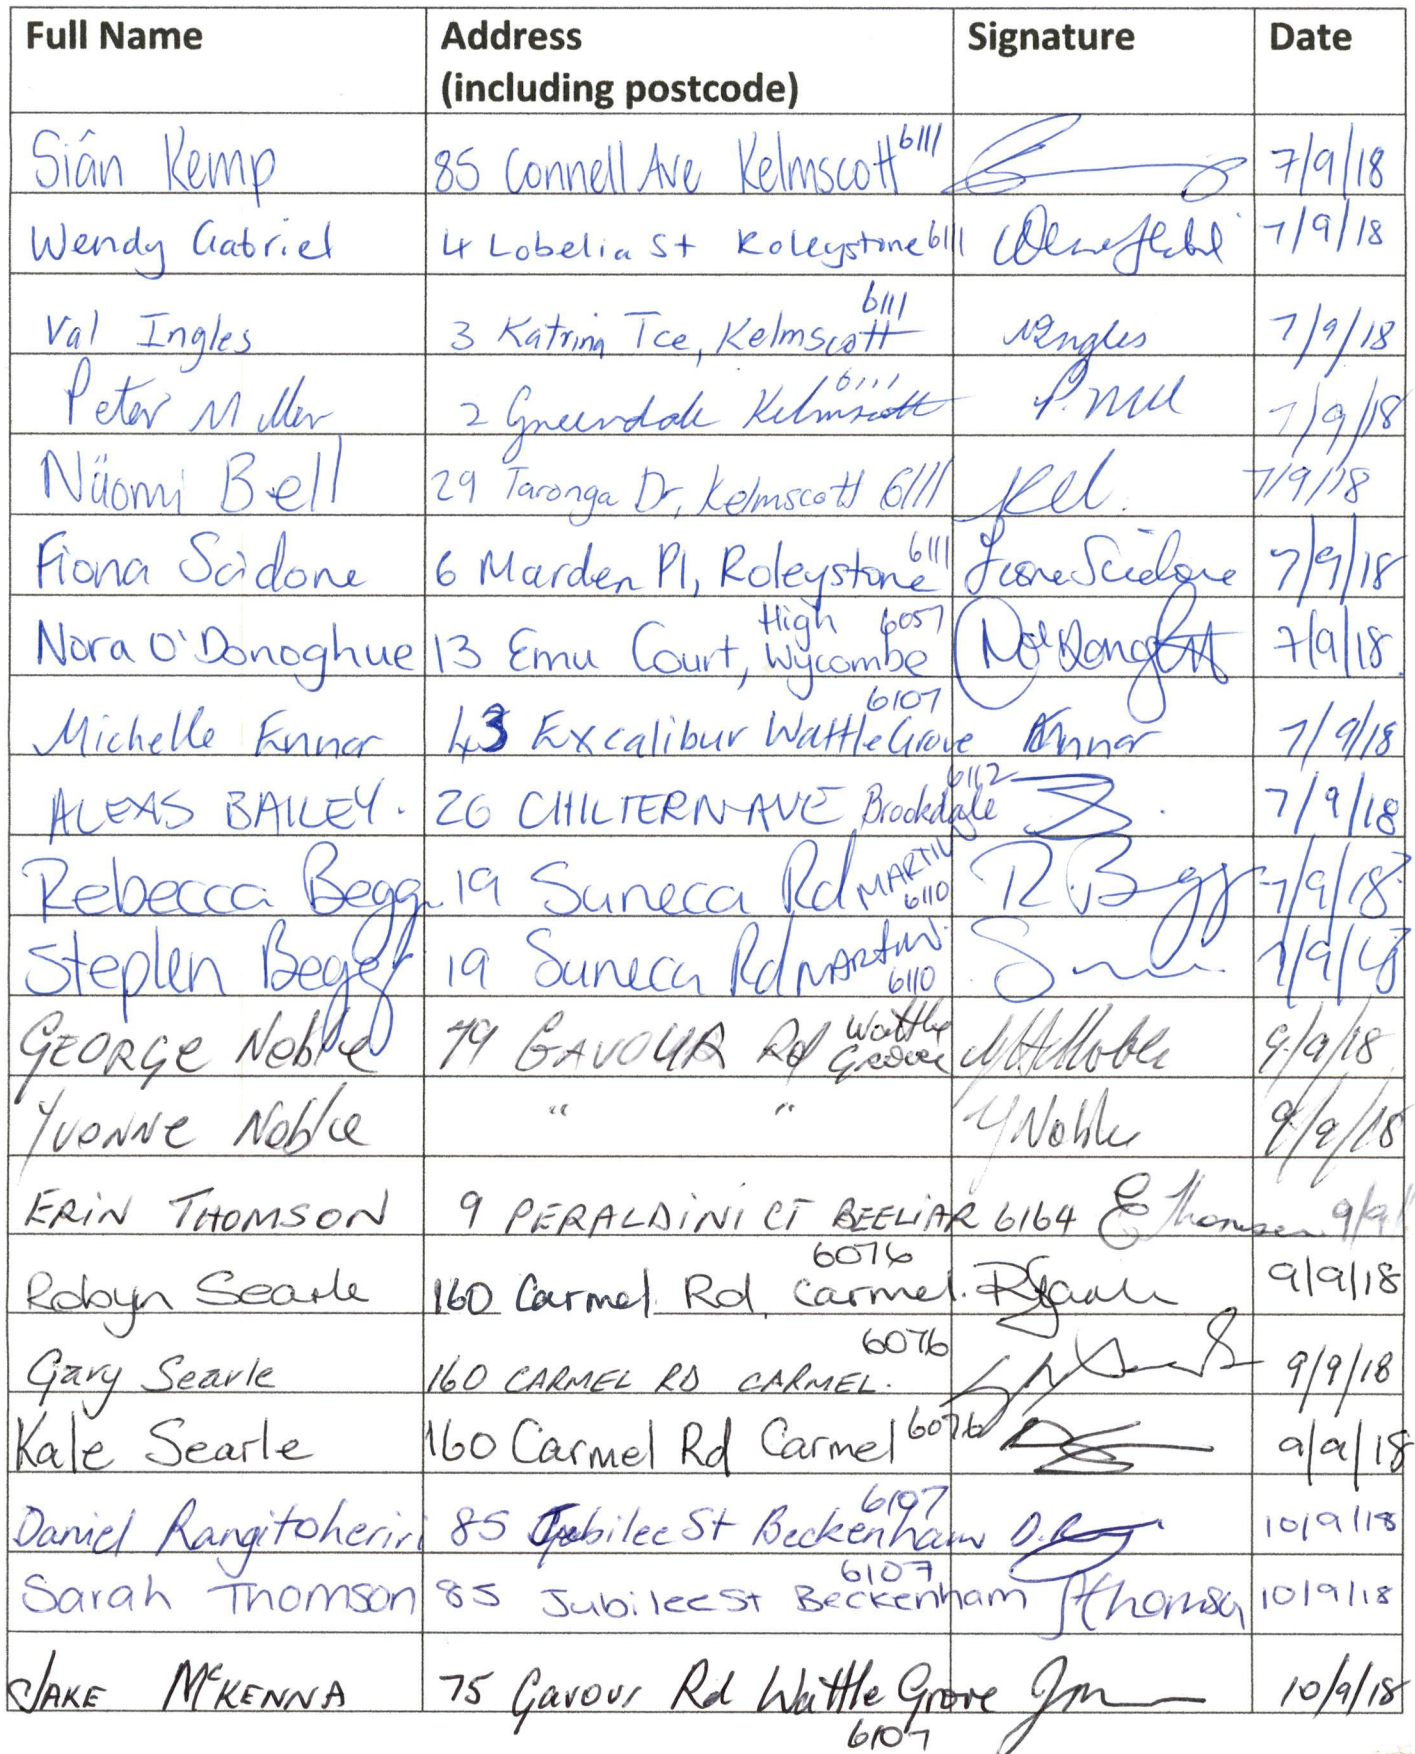 Full Name Address Signature Date
(including postcode)
Siân Kemp 85 Connell Ave Kelmscott 6111 7/9/18
Wendy Gabriel 4 Lobelia St Roleystone 6111 7/9/18
Val Ingles 3 Katrina Tce, Kelmscott 6111 VIngles 7/9/18
Peter Miller 2 Greendale Kelmscott 6111 P. Mill 7/9/18
Näomi Bell 29 Taronga Dr, Kelmscott 6111 7/9/18
Fiona Scidone 6 Marden Pl, Roleystone 6111 Fiona Scidone 7/9/18
Nora O'Donoghue 13 Emu Court, High Wycombe 6057 7/9/18
Michelle Ennor 43 Excalibur Wattle Grove 6107 Ennor 7/9/18
ALEXAS BAILEY. 26 CHILTERN AVE Brookdale 6112 7/9/18
Rebecca Begg 19 Suneca Rd MARTIN 6110 R. Begg 7/9/18
Stephen Begg 19 Suneca Rd MARTIN. 6110 7/9/18
GEORGE Noble 79 GAVOUR Rd Wattle Grove 9/9/18
YVONNE Noble " " Y Noble 9/9/18
ERIN THOMSON 9 PERALDINI CT BEELIAR 6164 E Thomson 9/9/1
Robyn Searle 160 Carmel Rd, Carmel. 6076 9/9/18
Gary Searle 160 CARMEL RD CARMEL. 6076 9/9/18
Kale Searle 160 Carmel Rd Carmel 6076 9/9/18
Daniel Rangitoheriri 85 Jubilee St Beckenham 6107 10/9/18
Sarah Thomson 85 Jubilee St Beckenham 6107 SThomson 10/9/18
JAKE McKENNA 75 Gavour Rd Wattle Grove 10/9/18
6107